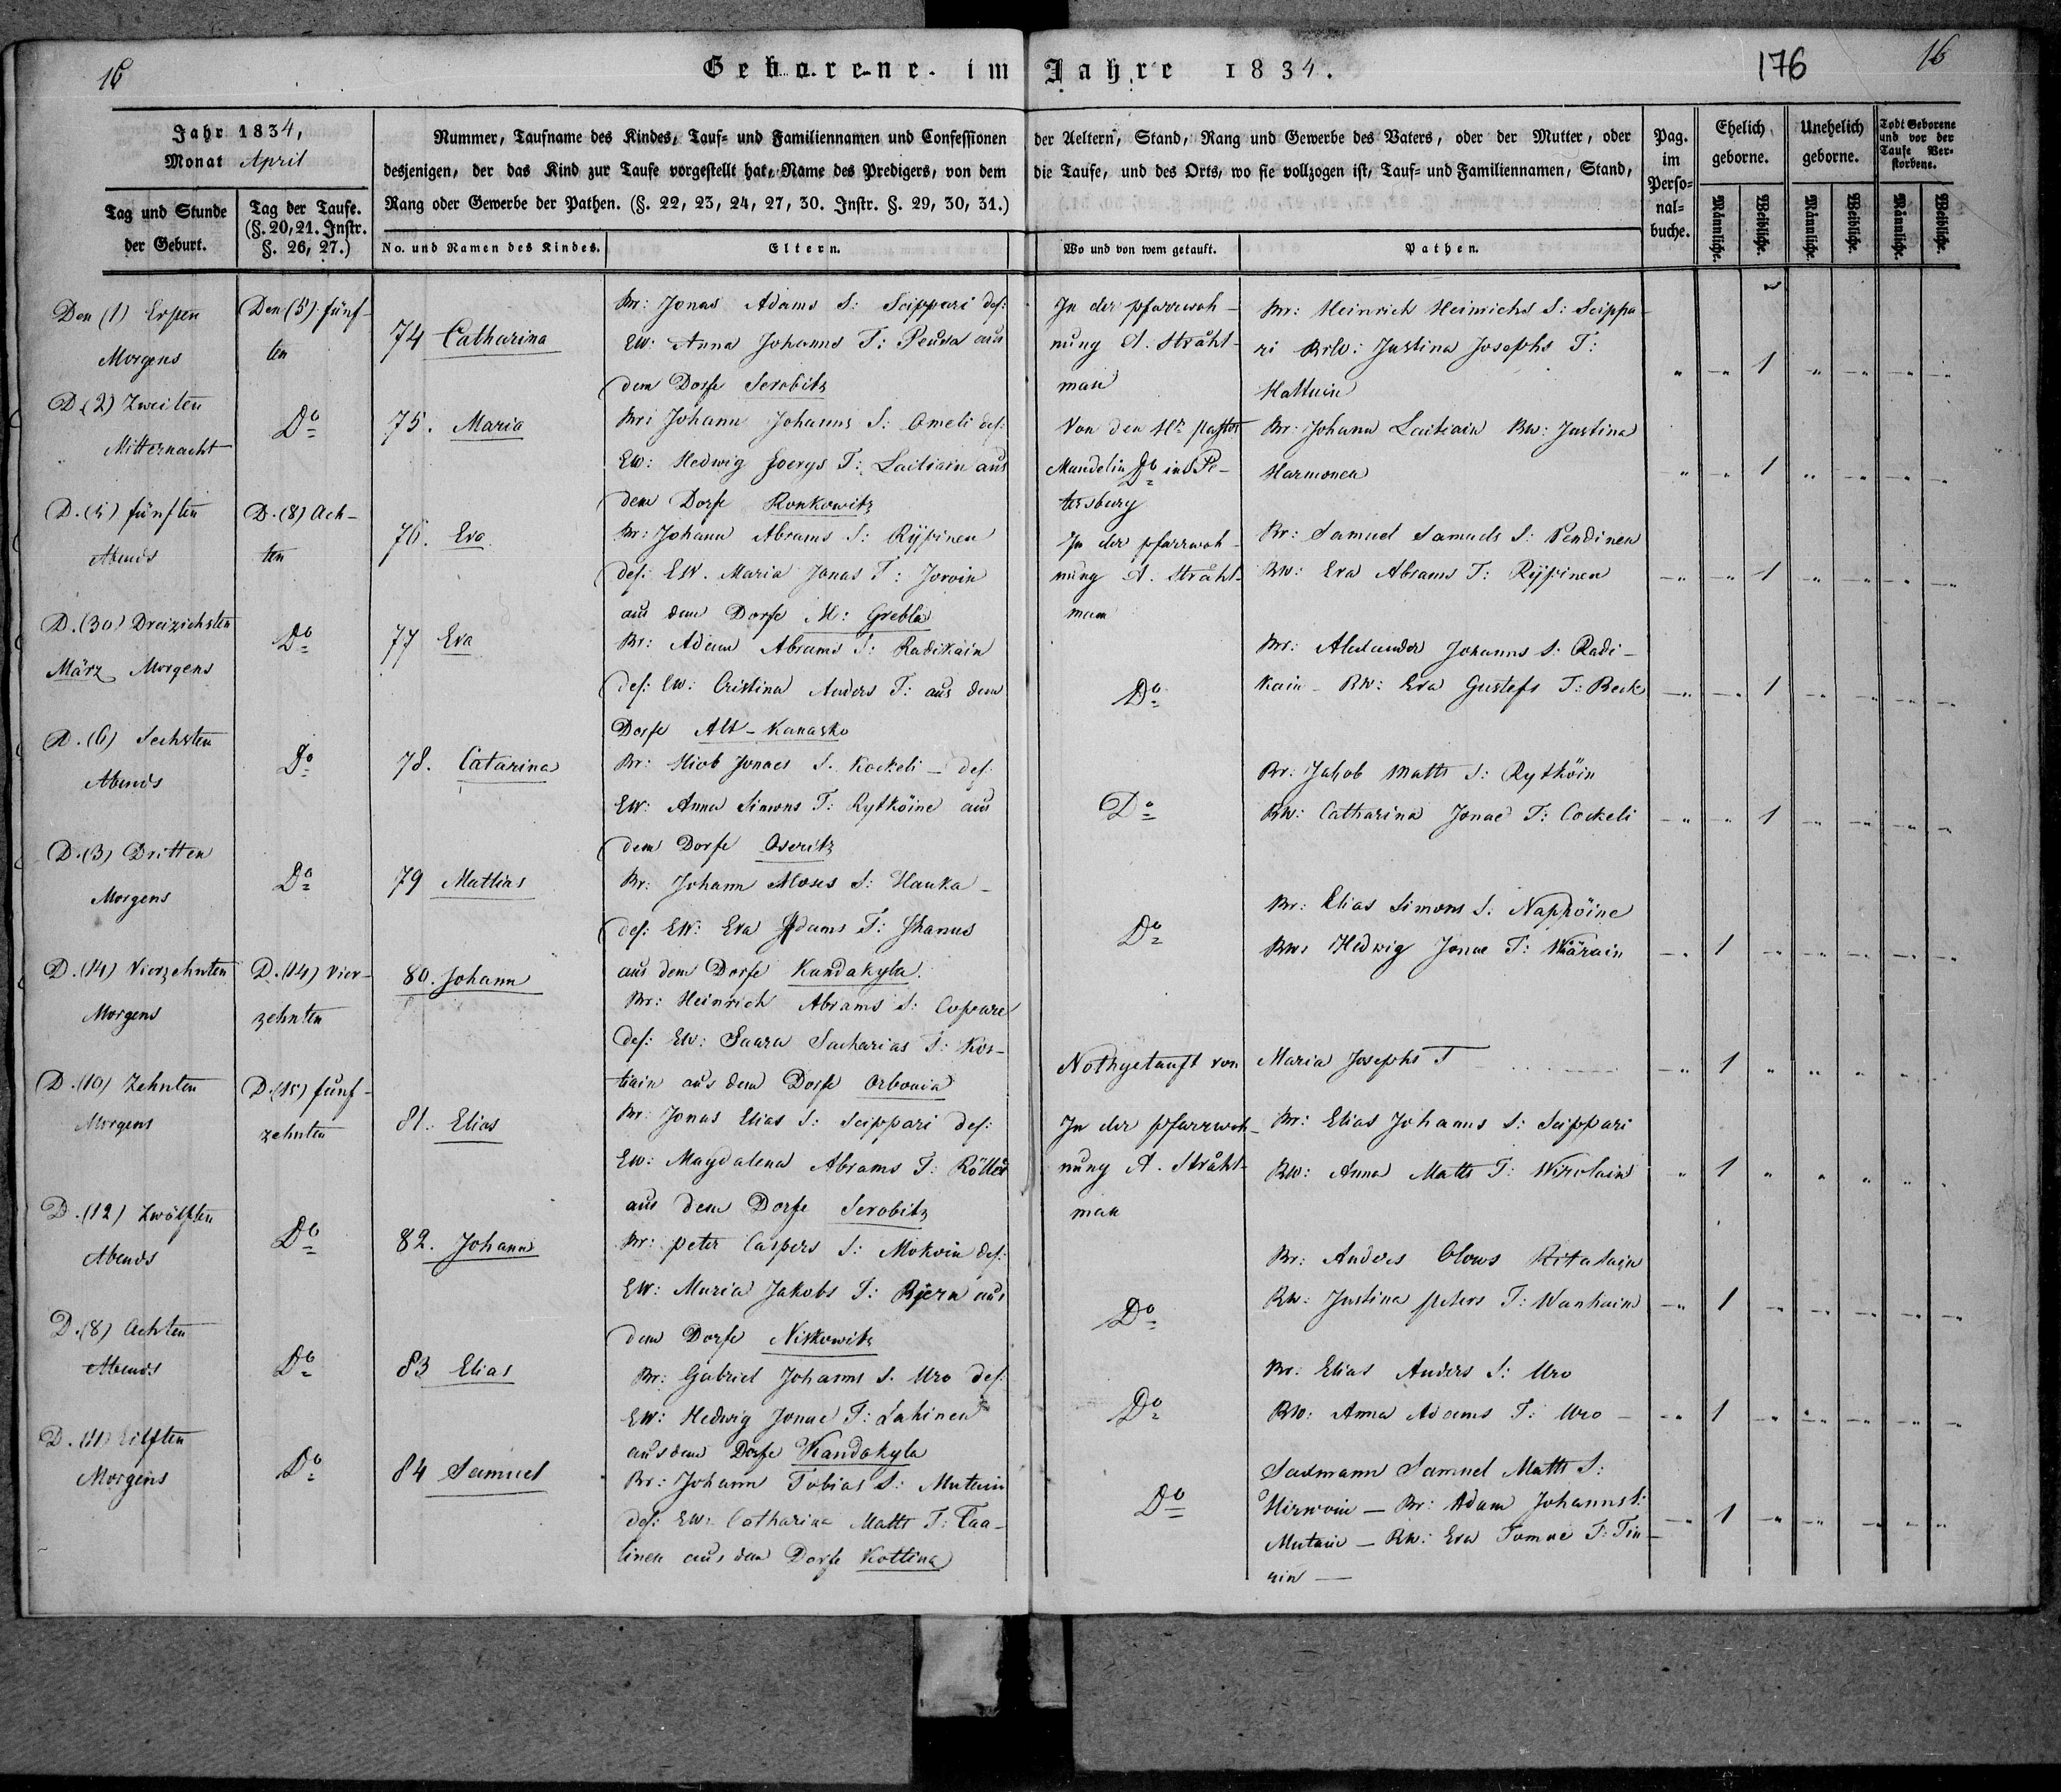 16
Geborene im Jahre 1834.
176
16
Jahr 1834,
Monat April
Tag und Stunde
der Geburt.
Tag der Taufe.
(§. 20, 21. Instr.
§. 26, 27.)
Nummer, Taufname des Kindes, Tauf- und Familiennamen und Confessionen
desjenigen, der das Kind zur Taufe vorgestellt hat, Name des Predigers, von dem
Rang oder Gewerbe der Pathen. (§. 22, 23, 24, 27, 30. Instr. §. 29, 30, 31.)
No. und Namen des Kindes.
Eltern.
der Aeltern, Stand, Rang und Gewerbe des Vaters, oder der Mutter, oder
die Taufe, und des Orts, wo sie vollzogen ist, Tauf- und Familiennamen, Stand,
Wo und von wem getauft.
Pathen.
Pag.
im
Perso-
nal-
buche.
Ehelich
geborne.
Unehelich
geborne.
Todt Geborene
und vor der
Taufe Ver-
storbene.
Männliche.
Weibliche.
Männliche.
Weibliche.
Männliche.
Weibliche.
Den (1) Ersten
Morgens
Den (5) fünf-
ten
74 Catharina
Br: Jonas Adams S: Seippari des:
EW: Anna Johanns T: aus
dem Dorfe Serobitz
In der Pfarrwoh-
nung A. Stråhl-
man
Br: Heinrich Heinrichs S: Seippa-
ri BW: Justina Josephs T:
1
D. (2) Zweiten
Mitternacht
Do
75. Maria
Br: Johann Johanns S: Omeli des:
EW: Hedwig Joergs T: Laitiain aus
dem Dorfe Ronkowitz
Von den Hr Pastor
Mandelin Do in S Pe-
tersburg
Br: Johann Laitiain BW: Justina
Harmonen
1
D. (5) fünften
Abends
D. (8) Ach-
ten
76. Eva
Br: Johann Abrams S: Ryÿinen
des: EW. Maria Jonas T: Jorvin
aus dem Dorfe M: Grebla
In der Pfarrwoh-
nung A. Stråhl-
man
Br: Samuel Samuels S: Pendinen
BW: Eva Abrams T:
1
D. (30) Dreizichsten
März Morgens
Do
77 Eva
Br: Adam Abrams S: Radikain
des: EW: Cristina Anders T: aus dem
Dorfe Alt-Kanasko
Do
Br: Alexander Johanns S: Radi-
kain - BW: Eva Gustefs T: Beck
1
D. (6) Sechsten
Abends
Do
78. Catarina
Br: Hiob Jonaes S. Kockeli - des:
EW: Anna Simons T: Rytköine aus
dem Dorfe Oseritz
Do
Br: Jakob Matts S: Rytköin
BW: Catharina Jonae T: Cockeli
1
D. (3) Dritten
Morgens
Do
79 Mattias
Br: Johann Moses S: Hauka -
des: EW: Eva Adams T: Ihanus
aus dem Dorfe Kandakyla
Do
Br: Elias Simons S: Napköine
BW: Hedwig Jonae T: Wärain
1
D. (14) Vierzehnten
Morgens
D. (14) Vier-
zehnten
80. Johann
Br: Heinrich Abrams S:
des: EW: Saara Sacharias T: Kos-
tiain aus dem Dorfe Orbonia
Nothgetauft von
Maria Josephs T
1
D. (10) Zehnten
Morgens
D. (15) fünf-
zehnten
81. Elias
Br: Jonas Elias S: Seippari des:
EW: Magdalena Abrams T:
aus dem Dorfe Serobitz
In der Pfarrwoh-
nung A. Stråhl-
man
Br: Elias Johanns S: Seippari
BW: Anna Matts T: Wirolain
1
D. (12) Zwölften
Abends
Do
82. Johann
Br: Peter Caspers S: Mokoin des:
EW: Maria Jakobs T: aus
dem Dorfe Niskowitz
Do
Br: Anders Olows Ritalain
BW: Justina Peters T: Wanhain
1
D. (8) Achten
Abends
Do
83 Elias
Br: Gabriel Johanns S. Uro des:
EW: Hedwig Jonae T: Lahinen
aus dem Dorfe Kandakyla
Do
Br: Elias Anders S: Uro
BW: Anna Adams T: Uro -
1
D. (11) Eilften
Morgens
Do
84 Samuel
Br: Johann Tobias S: Mutain
des: EW: Catharina Matts T: Taa-
linen aus dem Dorfe Kottina
Do
Samuel Matts S:
Hirwoin - Br: Adam Johanns S:
Mutain - BW: Eva Tomae T: Tin-
ain -
1